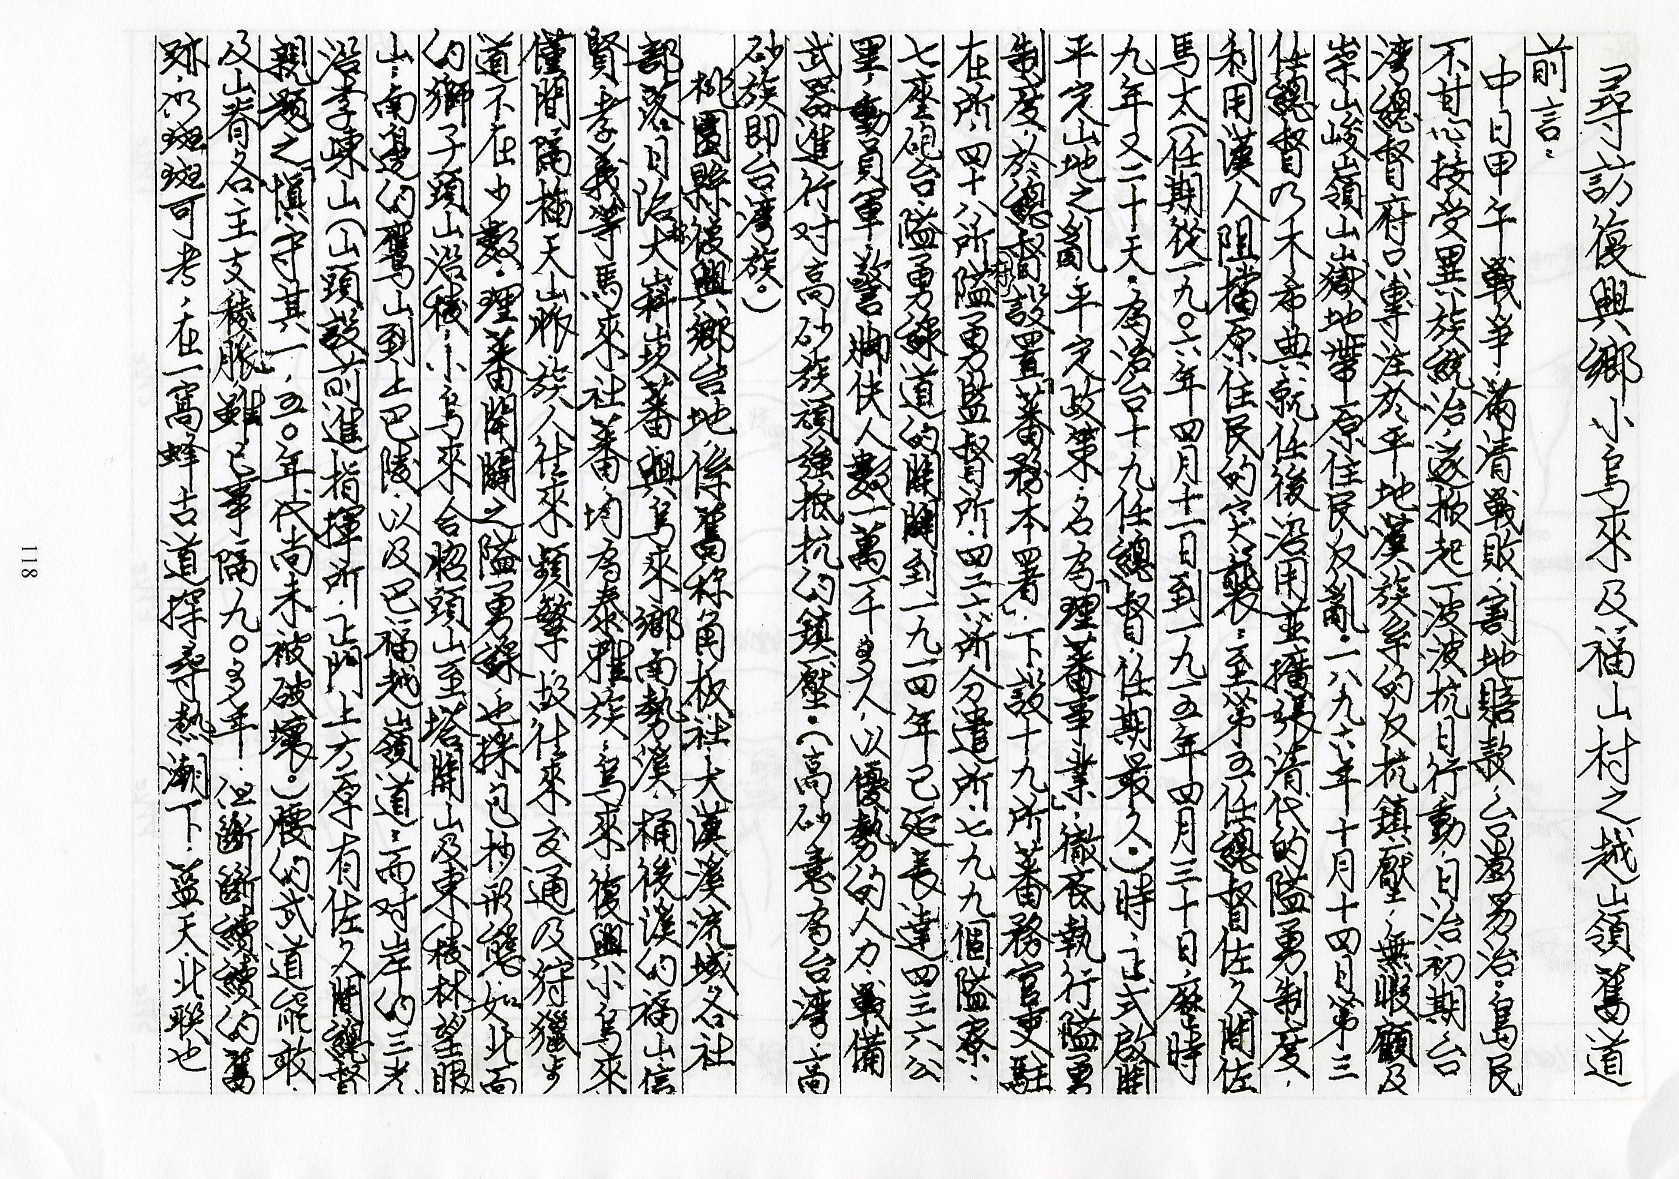 尋訪復興鄉小烏來及福山村之越山嶺舊道
前言：
中日甲午戰爭，滿清戰敗，割地賠款，台澎易治。島民
不甘心接受異族統治，遂掀起一波波抗日行動，日治初期台
湾總督府只專注於平地漢族系的反抗鎮壓，無暇顧及
崇山峻嶺山嶽地帶原住民反亂。一八九六年十月十四日第三
任總督乃木希典就任後，沿用並擴張清代的隘勇制度，
利用漢人阻擋原住民的突襲；至第五任總督佐久間佐
馬太（任期從一九０六年四月十一日到一九一五年四月三十日，歷時
九年又二十天。為治台十九任總督，任期最久。）時，正式啟開
平定山地之亂，平定政策，名為「理蕃事業」，徹底執行隘勇
制度，於總督府設置「蕃務本署」，下設十九所蕃務官吏駐
在所，四十八所隘勇監督所，四二六所分遣所，七九九個隘寮，
七座砲台，隘勇線道的開闢到一九一四年已延長達四三六公
里，動員軍，警，腳伕人數一萬一千多人，以優勢的人力，戰備
武器進行对高砂族頑強抵抗的鎮壓。（高砂意為台湾，高
砂族即台湾族。）
桃園縣復興鄉台地，係舊称角板社，大漢溪流域各社
部落，日治称大嵙崁蕃與烏來鄉南勢溪，桶後溪的福山信
賢，孝義等馬來社蕃，均為泰雅族，烏來，復興小烏來
僅間隔插天山脈，族人往來頻繁，故往來交通及狩獵步
道不在少數。理蕃開闢之隘勇線，也採包抄形態，如北面
的獅子頭山沿稜，小烏來，合脗頭山至塔開山及東稜林望眼
山；南邊的鴛山到上巴陵，以及巴福越嶺道；而对岸的三光
沿李崠山（山頭設前進指揮所，正門上方原有佐久間總督
親題之「慎守其一」，五０年代尚未被破壞。）腰的武道能敢，
及山脊各主支稜脈，雖已事隔九０多年，但斷斷續續的舊
跡，仍斑斑可考，在一窩蜂古道探尋熱潮下，藍天，北聯也
118